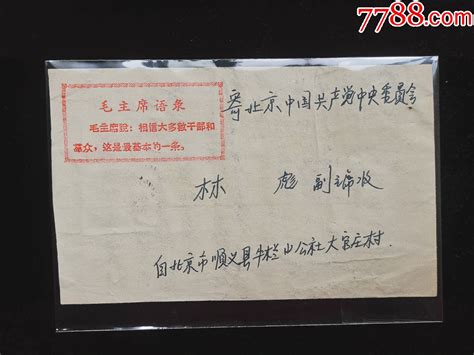 7788.com
毛主席语录
毛主席说：相信大多数干部和
群众，这是最基本的一条。
寄北京中国共产党中央委员会
林 彪 副主席收
自北京市顺义县牛栏山公社大官庄村